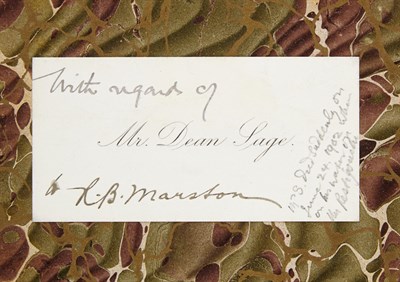 With regards of
Mr. Dean Sage.
to R. B. Marston
Died suddenly on
June 24. 1902
on his